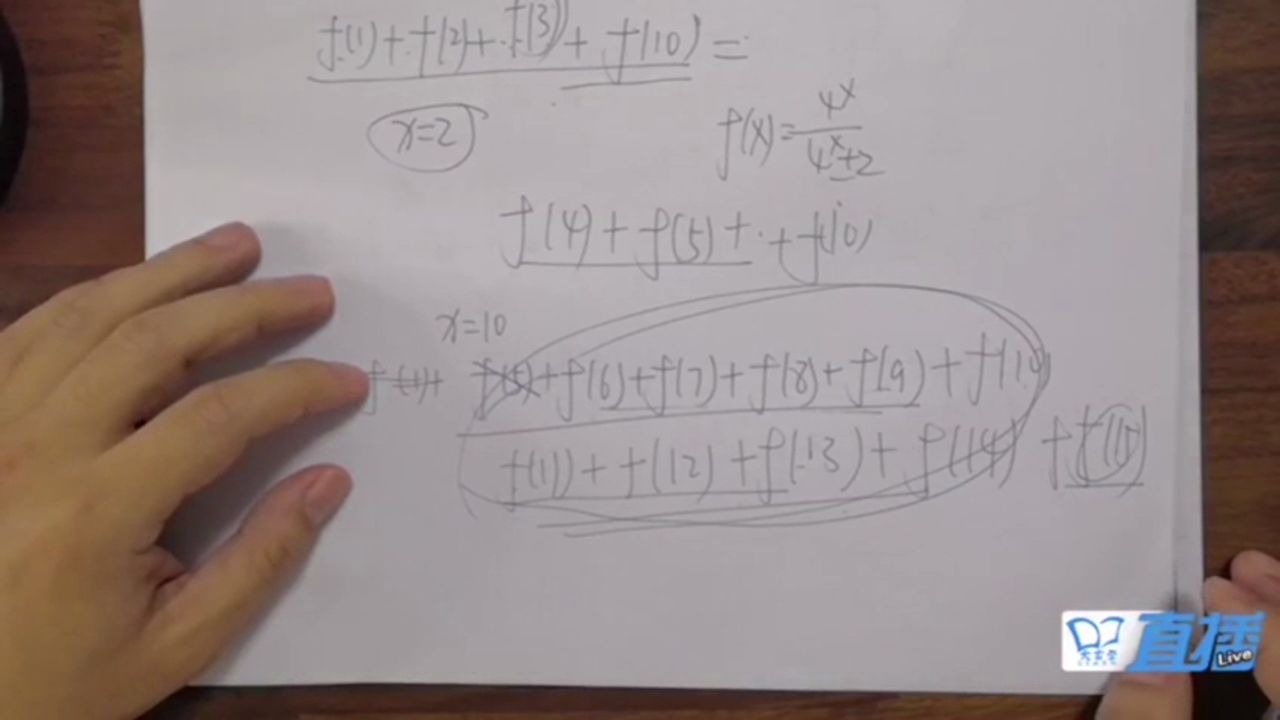 f(1)+f(2)+f(3)+f(10)=
x=2
f(x)=4^x/(4^x+2)
f(4)+f(5)+..+f(10)
x=10
f(1)+ f(5)+f(6)+f(7)+f(8)+f(9)+f(10
f(11)+f(12)+f(13)+f(14)
直播
Live